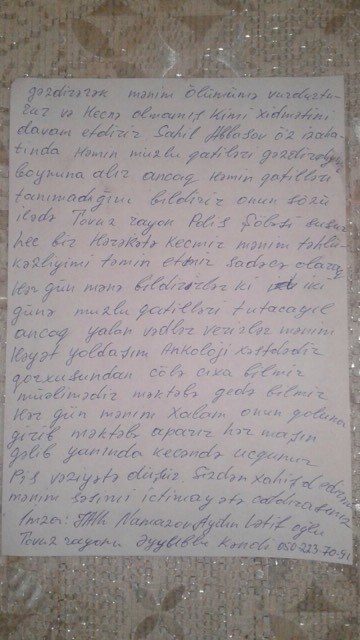 gəzdirərək mənim ölümümə vurdurtu-
rur və Heçnə olmamış kimi xidmətini
davam etdirir Sahil Abbasov öz izaha-
tında Həmin muzlu qatiləri gəzdirdiyini
boynuna alır ancaq Həmin qatilləri
tanımadığını bildirir onun sözü
ilədə Tovuz rayon Polis Şöbəsi susur
heç bir Hərəkətə keçmir mənim təhlü-
kəzliyimi təmin etmir sadəcə olaraq
Hər gün mənə bildirirlər ki iki
günə muzlu qatilləri tutacağıq
ancaq yalan vədlər verirlər mənim
Həyat yoldaşım Ankoloji xəstədir
qorxusundan çölə çıxa bilmir
müəlimədir məktəbə gedə bilmir
Hər gün mənim Xalam onun qoluna
girib məktəbə aparır hər maşın
gəlib yanında keçəndə uçunur
Pis vəziyətə düşür. Sizdən xahiş edirəm
mənim səsimi ictimayətə catdırasınız
İmza: Namazov Aydın Lətif oğlu
Tovuz rayonu Əyyublu Kəndi 050-223-70-91